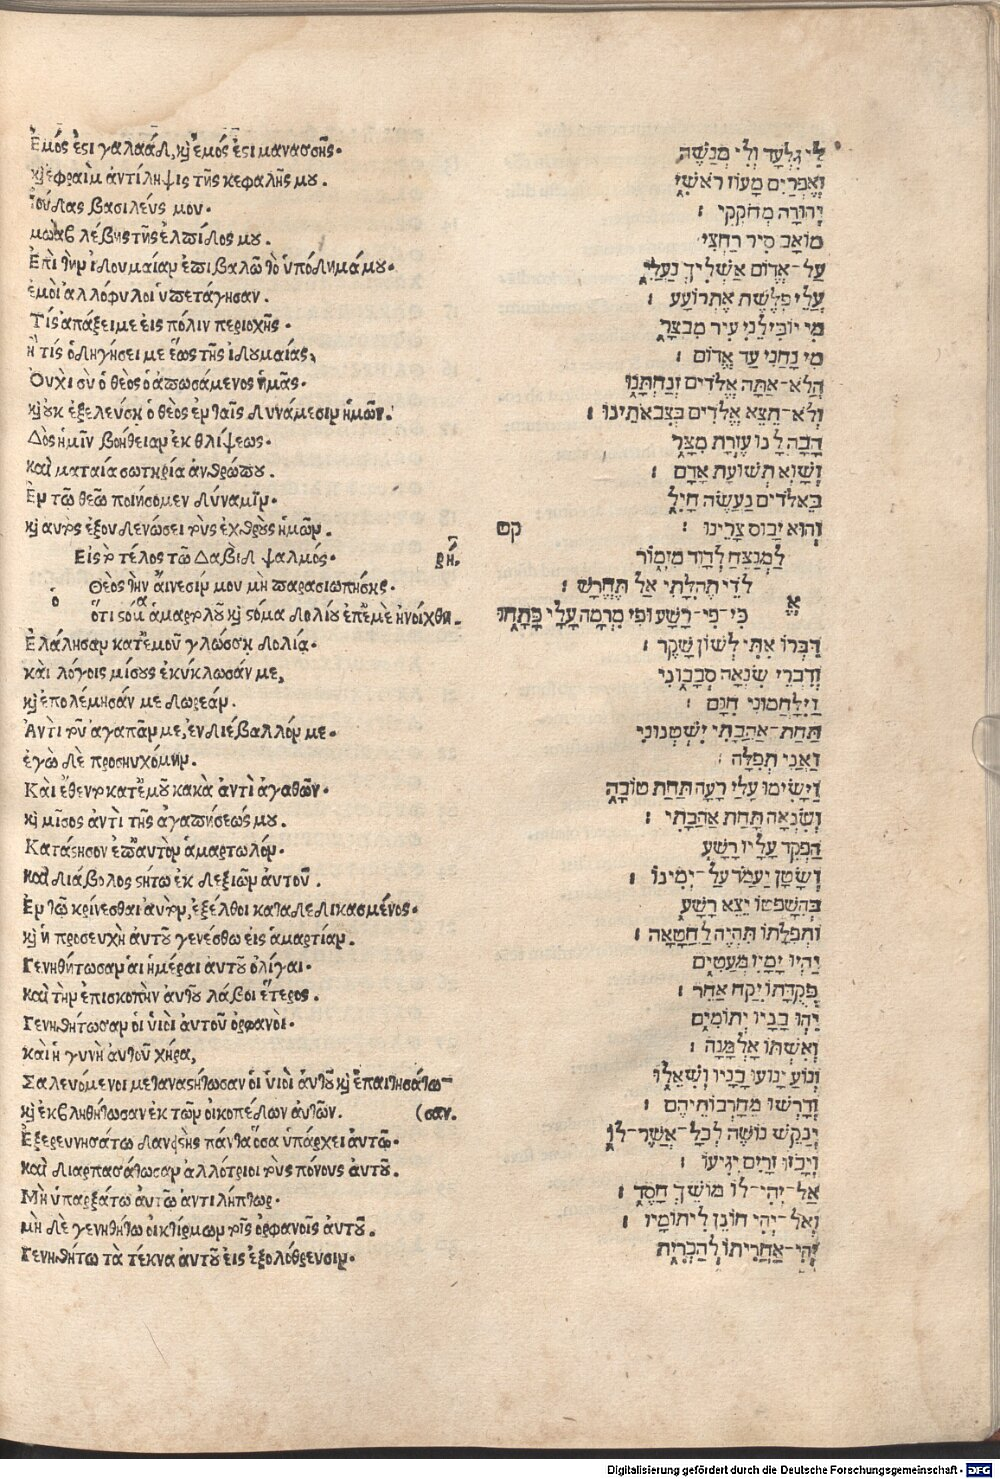 Ἐμός ἐστι γαλαάδ, καὶ ἐμός ἐστι μανασσῆς.
καὶ ἐφραὶμ ἀντίληψις τῆς κεφαλῆς μου.
Ἰούδας βασιλεύς μου.
μωὰβ λέβης τῆς ἐλπίδος μου.
Ἐπὶ τὴν ἰδουμαίαν ἐπιβαλῶ τὸ ὑπόδημά μου.
ἐμοὶ ἀλλόφυλοι ὑπετάγησαν.
Τίς ἀπάξει με εἰς πόλιν περιοχῆς.
ἢ τίς ὁδηγήσει με ἕως τῆς ἰδουμαίας,
Οὐχὶ σὺ ὁ θεὸς ὁ ἀπωσάμενος ἡμᾶς.
καὶ οὐκ ἐξελεύσῃ ὁ θεὸς ἐν ταῖς δυνάμεσιν ἡμῶν.
Δὸς ἡμῖν βοήθειαν ἐκ θλίψεως.
καὶ ματαία σωτηρία ἀνθρώπου.
Ἐν τῶ θεῶ ποιήσομεν δύναμιν.
καὶ αὐτὸς ἐξουδενώσει τοὺς ἐχθροὺς ἡμῶν.
Εἰς τὸ τέλος τῶ Δαβὶδ ψαλμός. ρη.
ὁ Θεὸς τὴν αἴνεσίν μου μὴ παρασιωπήσῃς.
ὅτι στόμα ἁμαρτωλοῦ καὶ στόμα δολίου ἐπ' ἐμὲ ἠνοίχθη.
Ἐλάλησαν κατ' ἐμοῦ γλώσσῃ δολίᾳ.
καὶ λόγοις μίσους ἐκύκλωσάν με,
καὶ ἐπολέμησάν με δωρεάν.
Ἀντὶ τοῦ ἀγαπᾶν με, ἐνδιέβαλλόν με.
ἐγὼ δὲ προσηυχόμην.
Καὶ ἔθεντο κατ' ἐμοῦ κακὰ ἀντὶ ἀγαθῶν.
καὶ μῖσος ἀντὶ τῆς ἀγαπήσεώς μου.
Κατάστησον ἐπ' αὐτὸν ἁμαρτωλόν.
καὶ διάβολος στήτω ἐκ δεξιῶν αὐτοῦ.
Ἐν τῶ κρίνεσθαι αὐτὸν, ἐξέλθοι καταδεδικασμένος.
καὶ ἡ προσευχὴ αὐτοῦ γενέσθω εἰς ἁμαρτίαν.
Γενηθήτωσαν αἱ ἡμέραι αὐτοῦ ὀλίγαι.
καὶ τὴν ἐπισκοπὴν αὐτοῦ λάβοι ἕτερος.
Γενηθήτωσαν οἱ υἱοὶ αὐτοῦ ὀρφανοί.
καὶ ἡ γυνὴ αὐτοῦ χήρα,
Σαλευόμενοι μεταναστήτωσαν οἱ υἱοὶ αὐτοῦ καὶ ἐπαιτησάτω-
καὶ ἐκβληθήτωσαν ἐκ τῶν οἰκοπέδων αὐτῶν. (σαν.
Ἐξερευνησάτω δανιστὴς πάντα ὅσα ὑπάρχει αὐτῶ.
καὶ διαρπασάτωσαν ἀλλότριοι τοὺς πόνους αὐτοῦ.
Μὴ ὑπαρξάτω αὐτῶ ἀντιλήπτωρ.
μὴ δὲ γενηθήτω οἰκτίρμων τοῖς ὀρφανοῖς αὐτοῦ.
Γενηθήτω τὰ τέκνα αὐτοῦ εἰς ἐξολόθρευσιν.
לִי גִלְעָד וְלִי מְנַשֶּׁה
וְאֶפְרַיִם מָעוֹז רֹאשִׁי
יְהוּדָה מְחֹקְקִי :
מוֹאָב סִיר רַחְצִי
עַל-אֱדוֹם אַשְׁלִיךְ נַעֲלִי
עֲלֵי פְלֶשֶׁת אֶתְרוֹעָע :
מִי יוֹבִילֵנִי עִיר מִבְצָר
מִי נָחַנִי עַד אֱדוֹם :
הֲלֹא-אַתָּה אֱלֹדִים זְנַחְתָּנוּ
וְלֹא-תֵצֵא אֱלֹדִים בְּצִבְאֹתֵינוּ :
הָבָה לָנוּ עֶזְרָת מִצָּר
וְשָׁוְא תְּשׁוּעַת אָדָם :
בֵּאלֹדִים נַעֲשֶׂה חָיִל
וְהוּא יָבוּס צָרֵינוּ : קט
לַמְנַצֵּחַ לְדָוִד מִזְמוֹר
לֹדֵי תְהִלָּתִי אַל תֶּחֱרַשׁ :
כִּי-פִי-רָשָׁע וּפִי מִרְמָה עָלַי פָּתָחוּ
דִּבְּרוּ אִתִּי לְשׁוֹן שָׁקֶר :
וְדִבְרֵי שִׂנְאָה סְבָבוּנִי
וַיִּלָּחֲמוּנִי חִנָּם :
תַּחַת-אַהֲבָתִי יִשְׂטְנוּנִי
וַאֲנִי תְפִלָּה :
וַיָּשִׂימוּ עָלַי רָעָה תַּחַת טוֹבָה
וְשִׂנְאָה תַּחַת אַהֲבָתִי :
הַפְקֵד עָלָיו רָשָׁע
וְשָׂטָן יַעֲמֹד עַל-יְמִינוֹ :
בְּהִשָּׁפְטוֹ יֵצֵא רָשָׁע
וּתְפִלָּתוֹ תִּהְיֶה לַחֲטָאָה :
יִהְיוּ יָמָיו מְעַטִּים
פְּקֻדָּתוֹ יִקַּח אַחֵר :
יִהְיוּ בָנָיו יְתוֹמִים
וְאִשְׁתּוֹ אַלְמָנָה :
וְנוֹעַ יָנוּעוּ בָנָיו וְשִׁאֵלוּ
וְדָרְשׁוּ מֵחָרְבוֹתֵיהֶם :
יְנַקֵּשׁ נוֹשֶׁה לְכָל-אֲשֶׁר-לוֹ
וְיָבֹזּוּ זָרִים יְגִיעוֹ :
אַל-יְהִי-לוֹ מוֹשֵׁךְ חָסֶד :
וְאַל-יְהִי חוֹנֵן לִיתוֹמָיו :
יְהִי-אַחֲרִיתוֹ לְהַכְרִית
Digitalisierung gefördert durch die Deutsche Forschungsgemeinschaft - DFG